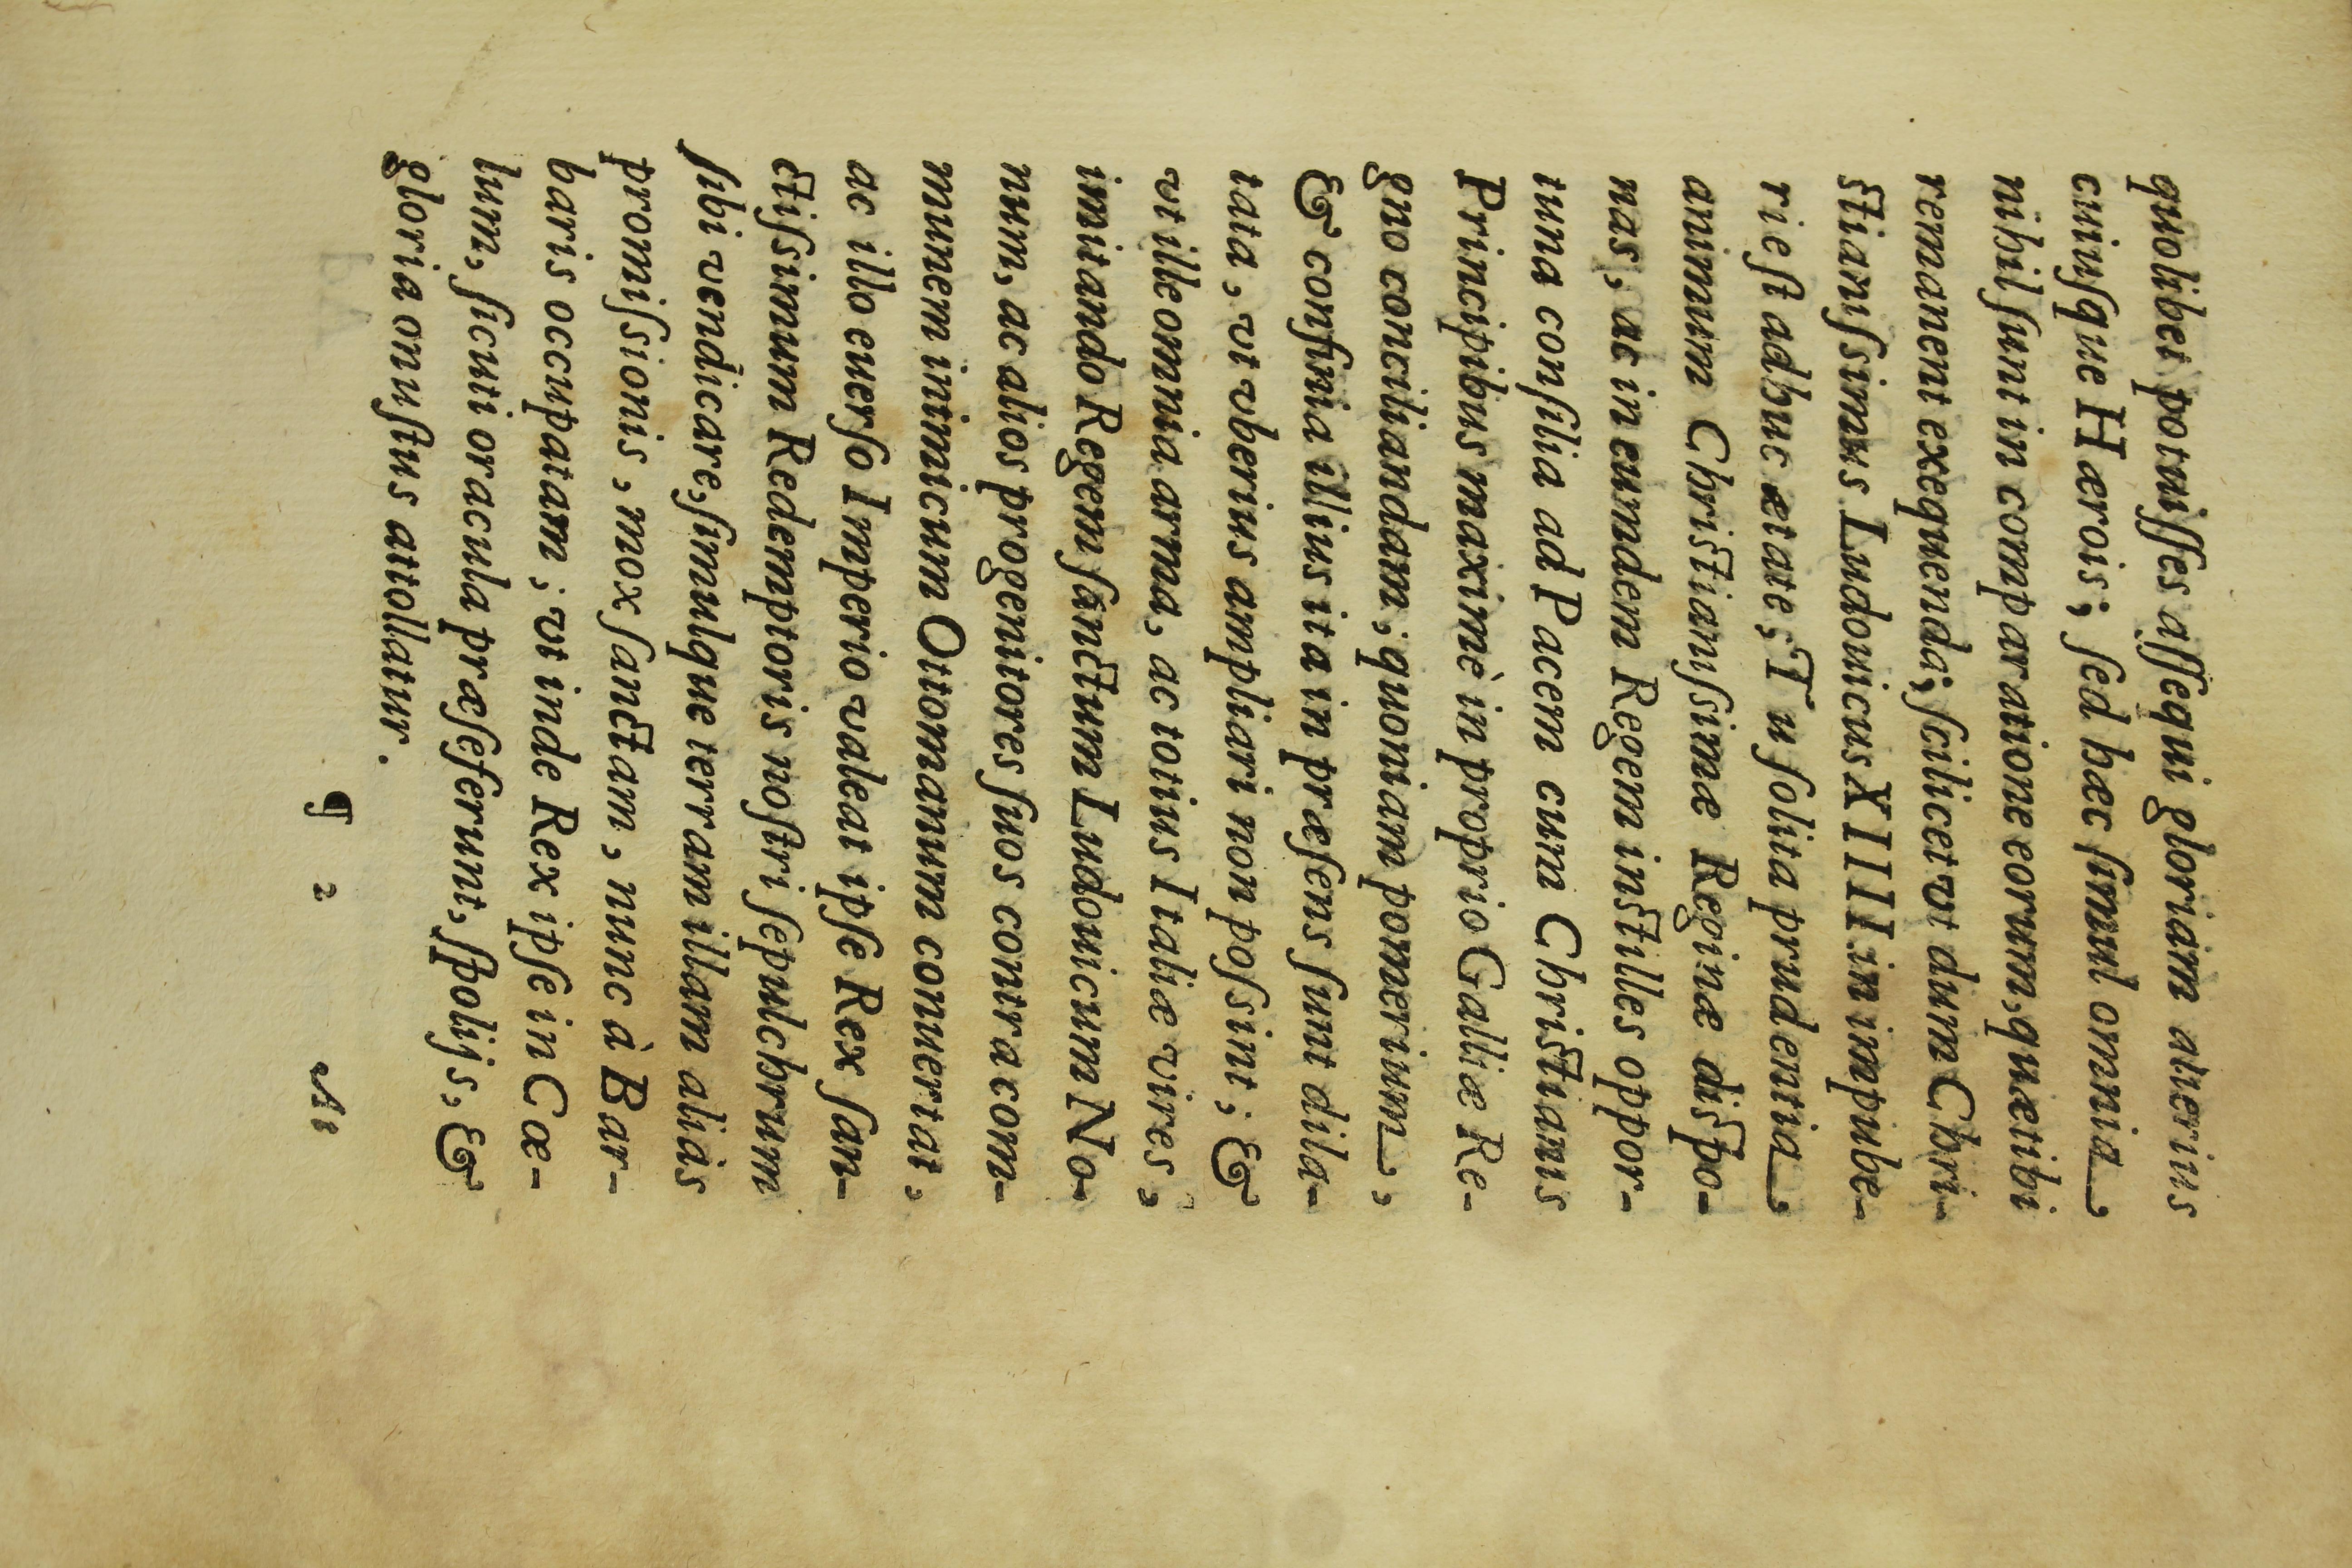 quolibet potuiſſes aſſequi gloriam alterius
cuiuſque Hærois; ſed hæc ſimul omnia,
nihil ſunt in comparatione eorum, quæ tibi
remanent exequenda; ſcilicet vt dum Chri-
ſtianiſsimus Ludouicus XIIII. in impube-
ri eſt adhuc ætate; Tu ſolita prudentia,
animum Chriſtianiſsimæ Reginæ diſpo-
nas, ac in eumdem Regem inſtilles oppor-
tuna conſilia ad Pacem cum Chriſtianis
Principibus maximè in proprio Galliæ Re-
gno conciliandam; quoniam pomerium,
& confinia illius ita in præſens ſunt dila-
tata, vt vberius ampliari non poſsint; &
vt ille omnia arma, ac totius Italiæ vires,
imitando Regem ſanctum Ludouicum No-
num, ac alios progenitores ſuos contra com-
munem inimicum Ottomanum conuertat,
ac illo euerſo Imperio valeat ipſe Rex ſan-
ctiſsimum Redemptoris noſtri ſepulchrum
ſibi vendicare, ſimulque terram illam aliàs
promiſsionis, mox ſanctam, nunc à Bar-
baris occupatam; vt inde Rex ipſe in Cæ-
lum, ſicuti oracula præſeferunt, ſpolijs, &
gloria onuſtus attollatur.
¶ 2 At